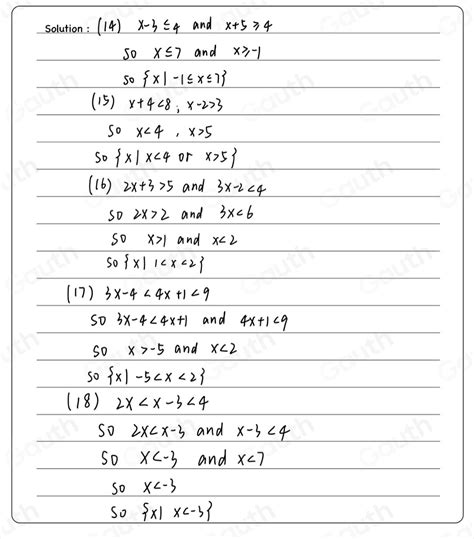 Solution : (14) x-3 ≤ 4 and x+5 ≥ 4
so x ≤ 7 and x ≥ -1
so {x | -1 ≤ x ≤ 7}
(15) x+4<8, x-2>3
so x<4 , x>5
so {x | x<4 or x>5}
(16) 2x+3>5 and 3x-2<4
so 2x>2 and 3x<6
so x>1 and x<2
so {x | 1<x<2}
(17) 3x-4 < 4x+1 < 9
so 3x-4<4x+1 and 4x+1<9
so x>-5 and x<2
so {x | -5<x<2}
(18) 2x < x-3 < 4
so 2x<x-3 and x-3<4
so x<-3 and x<7
so x<-3
so {x | x<-3}